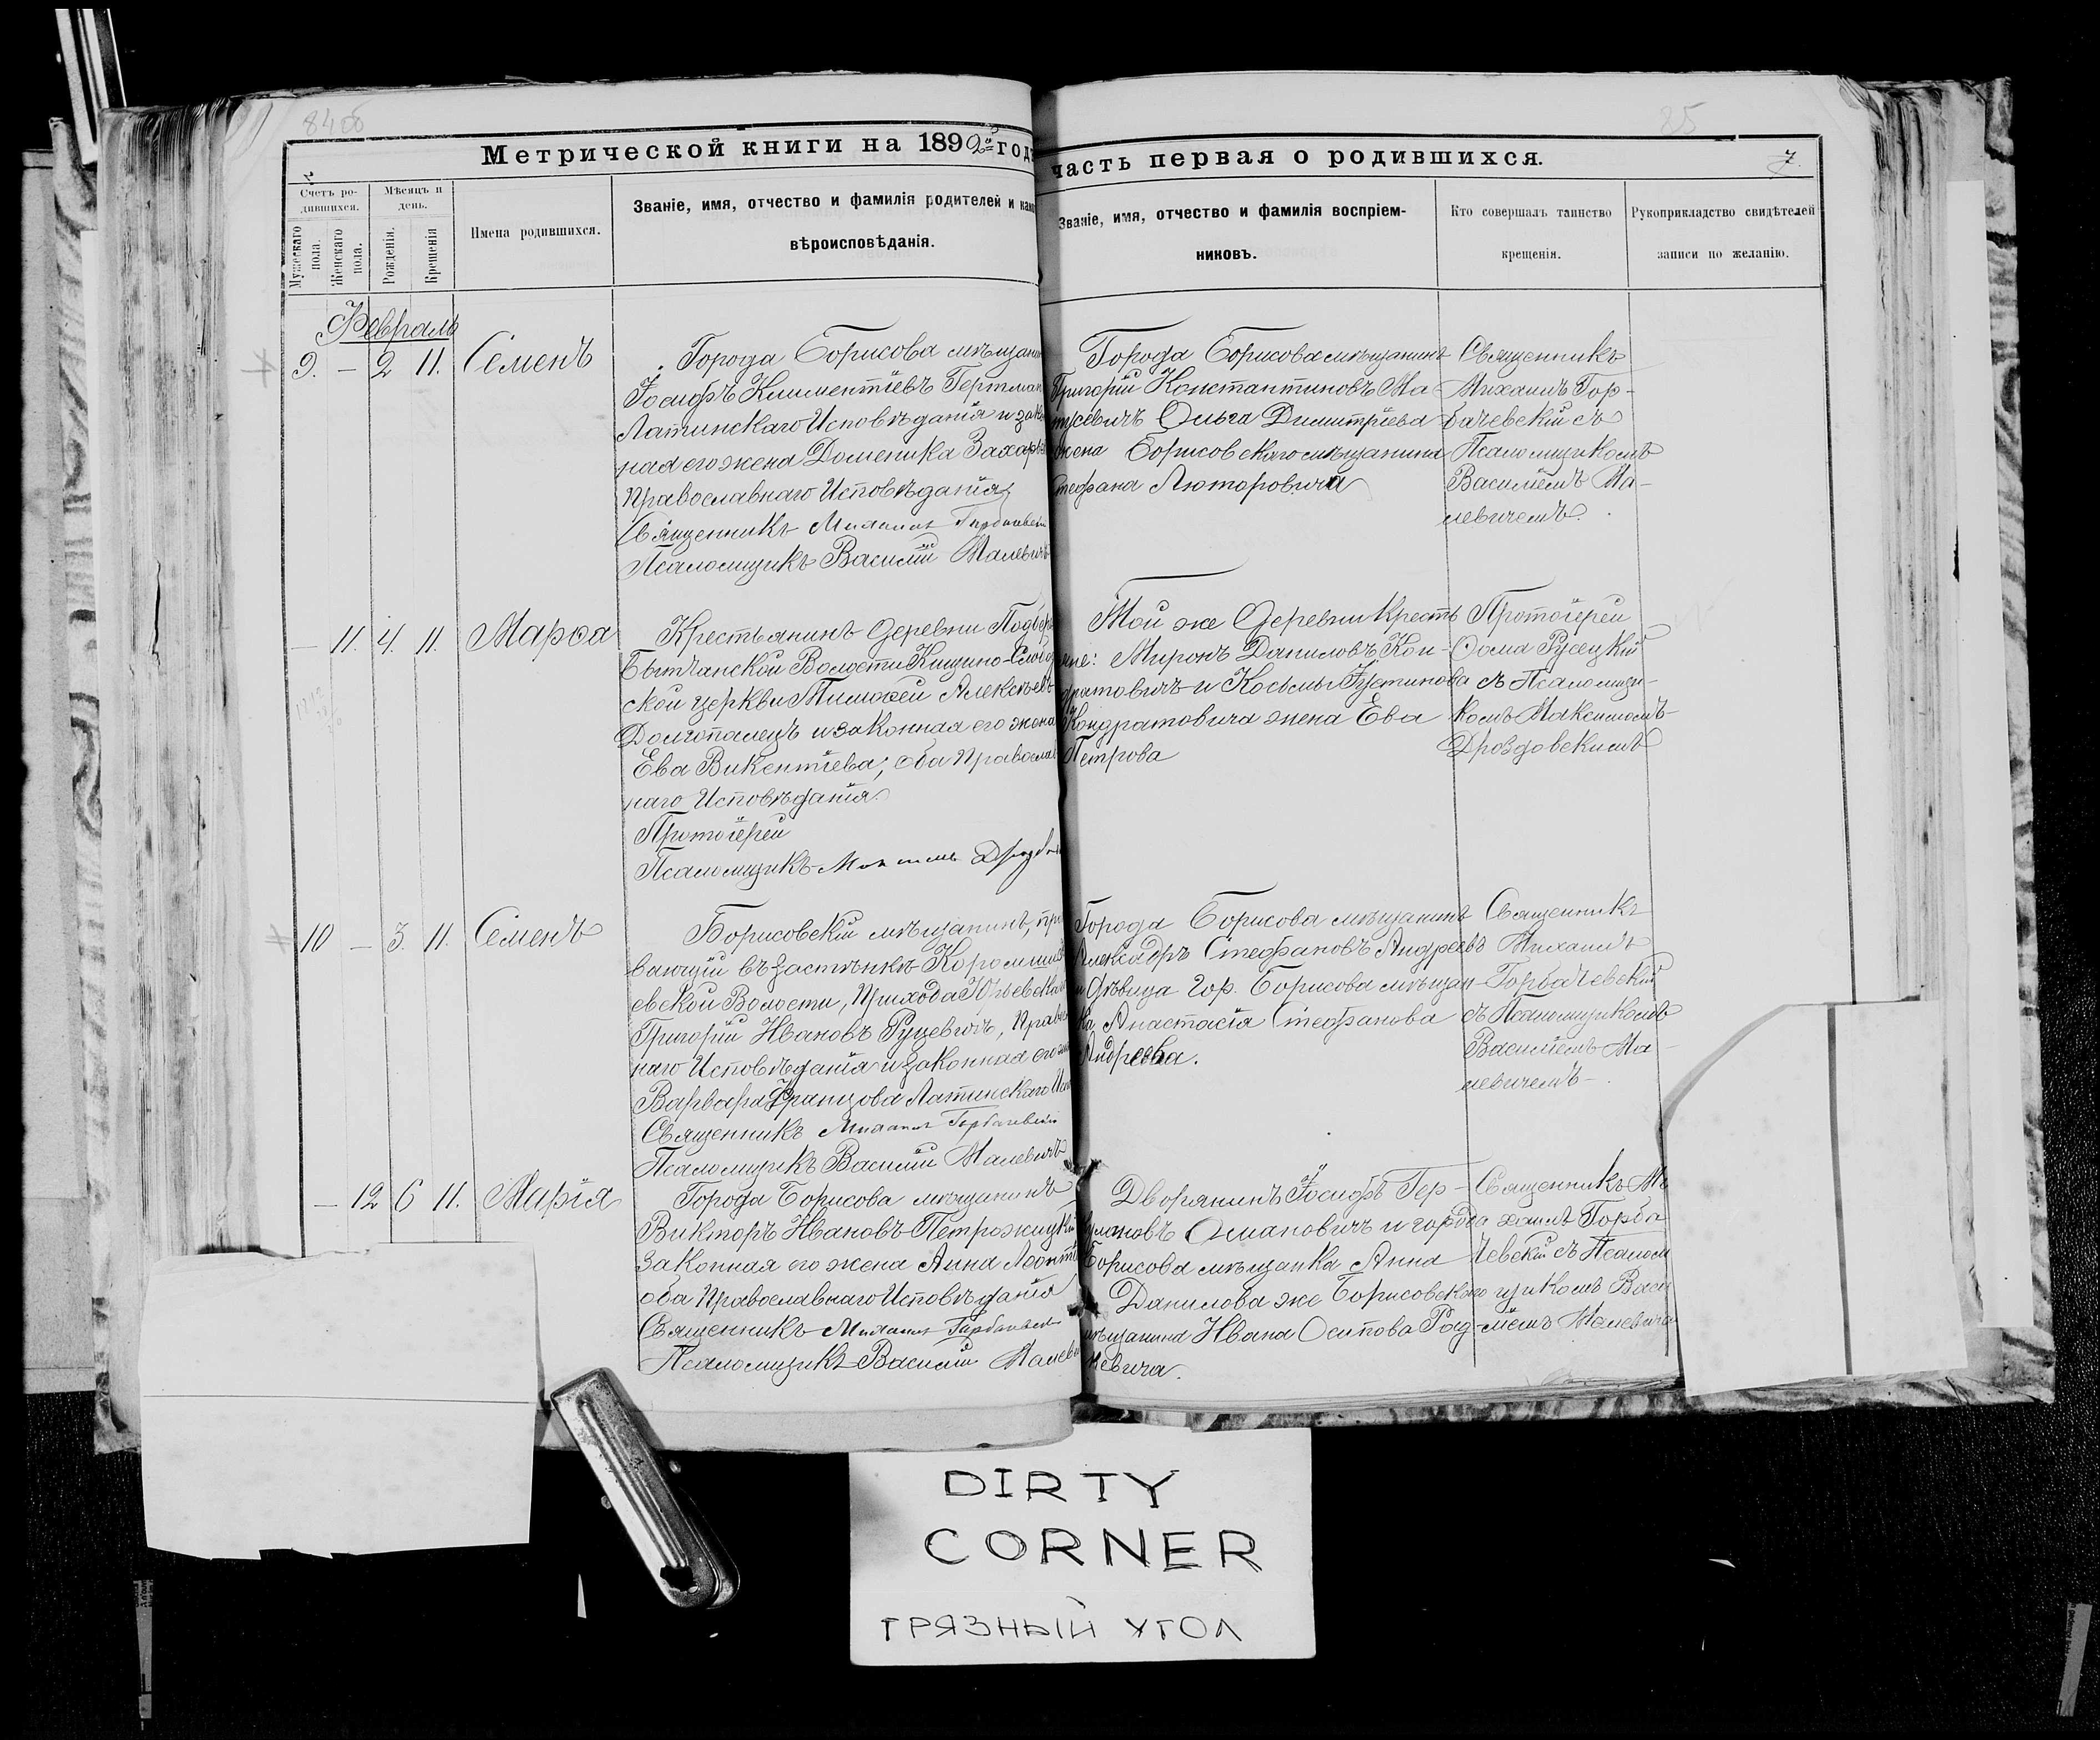 84об
25
Метрической книги на 1892ой годъ
часть первая о родившихся.
7.
Счетъ ро-
дившихся.
Мѣсяцъ и
день.
Мужескаго
пола.
Женскаго
пола.
Рожденія.
Крещенія
Имена родившихся.
Званіе, имя, отчество и фамилія родителей и како
вѣроисповѣданія.
Званіе, имя, отчество и фамилія воспріем-
никовъ.
Кто совершалъ таинство
крещенія.
Рукоприкладство свидѣтелей
записи по желанію.
Февраль
9. – 2 11. Семенъ
Города Борисова мѣщанин
Іосифъ Климентіевъ Гертман
Латинскаго Исповѣданія и закон
ная его жена Доменика Захарьев
Православнаго Исповѣданія
Священникъ Михаилъ Горбачевскі
Псаломщикъ Василій Малевичъ
Города Борисова мѣщанинъ
Григорій Константиновъ Ма-
тусевичъ Ольга Димитріева
жена Борисовскаго мѣщанина
Стефана Лютаровича
Священникъ
Михаилъ Гор-
бачевскій съ
Псаломщикомъ
Василіемъ Ма-
левичемъ.
– 11. 4. 11. Марѳа
Крестьянинъ деревни Подбер
Бытчанской Волости Кищино-Слобод
ской церкви Тимоѳей Алексѣевъ
Долгопалецъ и законная его жена
Ева Викентіева, оба Православ
наго Исповѣданія.
Протоіерей
Псаломщикъ Максимъ Дроздов
Той же деревни Кресть
яне: Миронъ Даниловъ Кон-
дратовичъ и Косьмы Іустинова
Кондратовича жена Ева
Петрова
Протоіерей
Ѳома Русецкій
съ Псаломщи-
комъ Максимомъ
Дроздовскимъ
10 – 3. 11. Семенъ
Борисовскій мѣщанинъ, про
вающій въ застѣнкѣ
евской Волости, Прихода Юрьевска
Григорій Ивановъ Руцевичъ, Правосл
наго Исповѣданія и законная его жен
Варвара Францова Латинскаго Исп
Священникъ Михаилъ Горбачевскій
Псаломщикъ Василій Малевичъ
Города Борисова мѣщанинъ
Александръ Стефановъ Андреевъ
и дѣвица гор. Борисова мѣщан-
ка Анастасія Стефанова
Андреева.
Священникъ
Михаилъ
Горбачевскій
съ Псаломщикомъ
Василіемъ Ма-
левичемъ
– 12 6 11. Марія
Города Борисова мѣщанинъ
Викторъ Ивановъ Петрожицкі
Законная его жена Анна Леонті
оба Православнаго Исповѣданія
Священникъ Михаилъ Горбачевск
Псаломщикъ Василій Малеви
Дворянинъ Іосифъ Гер-
мановъ Османовичъ и города
Борисова мѣщанка Анна
Данилова же Борисовскаго
мѣщанина Ивана Осипова Род-
кевича.
Священникъ Ми
хаилъ Горба
чевскій съ Псалом
щикомъ Васи
ліемъ Малевиче
DIRTY
CORNER
ГРЯЗНЫЙ УГОЛ